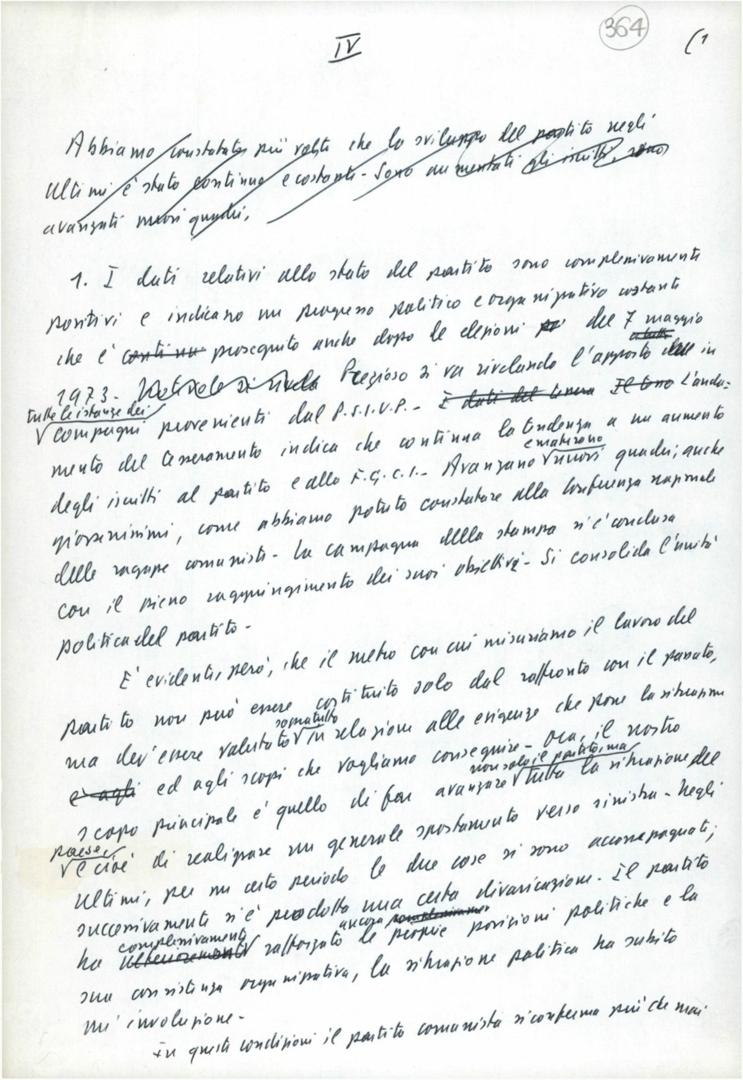 364
IV
(1
Abbiamo constatato più volte che lo sviluppo del partito negli
ultimi è stato continuo e costante - Sono aumentati gli iscritti, sono
avanzati nuovi quadri,
1. I dati relativi allo stato del partito sono complessivamente
positivi e indicano un progresso politico e organizzativo costante
che è continuo proseguito anche dopo le elezioni del 7 maggio
1973 - Prezioso si va rivelando l'apporto in
tutte le istanze dei
compagni provenienti dal P.S.I.U.P. - I dati del tesera Il tess L'anda=
mento del tesseramento indica che continua la tendenza a un aumento
degli iscritti al partito e alla F.G.C.I. - Avanzano e maturano nuovi quadri, anche
giovanissimi, come abbiamo potuto constatare alla Conferenza nazionale
delle ragazze comuniste - La campagna della stampa si è conclusa
con il pieno raggiungimento dei suoi obiettivi - Si consolida l'unità
politica del partito -
E' evidente, però, che il metro con cui misuriamo il lavoro del
partito non può essere costituito solo dal raffronto con il passato,
ma dev'essere valutato soprattutto in relazione alle esigenze che pone la situazione
e agli ed agli scopi che vogliamo conseguire - Ora, il nostro
scopo principale è quello di far avanzare non solo il partito, ma tutta la situazione del
paese, e cioè di realizzare un generale spostamento verso sinistra - Negli
ultimi, per un certo periodo le due cose si sono accompagnate;
successivamente si è prodotta una certa divaricazione - Il partito
ha complessivamente ulteriormente rafforzato ancora le proprie posizioni politiche e la
sua consistenza organizzativa, la situazione politica ha subito
un'involuzione -
In queste condizioni il partito comunista si conferma più che mai